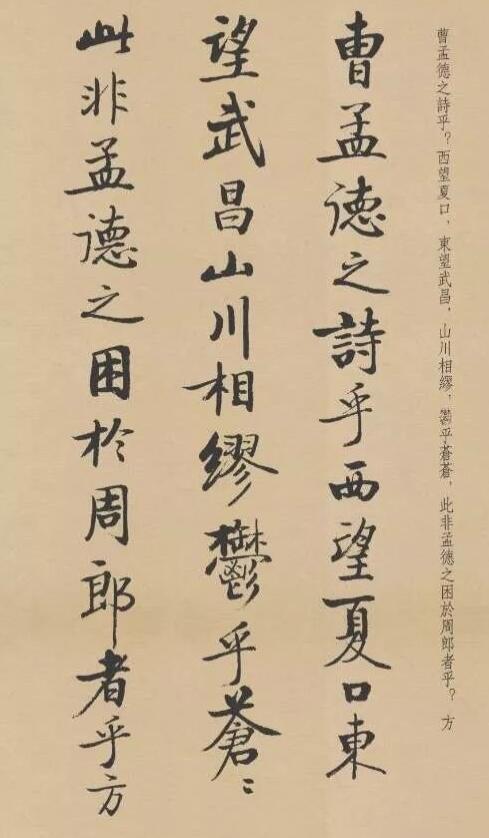 曹孟德之詩乎？西望夏口，東望武昌，山川相繆，鬱乎蒼蒼，此非孟德之困於周郎者乎？方
曹孟德之詩乎西望夏口東
望武昌山川相繆鬱乎蒼〻
此非孟德之困於周郎者乎方